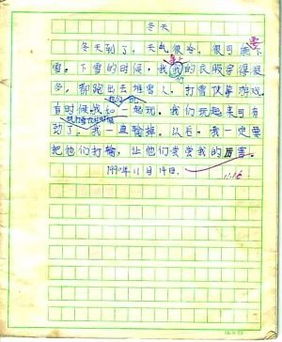 冬天
冬天到了，天气很冷，很可能下
雪。下雪的时候，我们的衣服穿得很
多，都跑出去堆雪人，打雪仗等游戏
有时候我 一起玩。我们玩起来可有
劲了。我一直输掉。以后，我一定要
把他们打输，让他们尝尝我的厉害。
1997年11月14日。
11.16